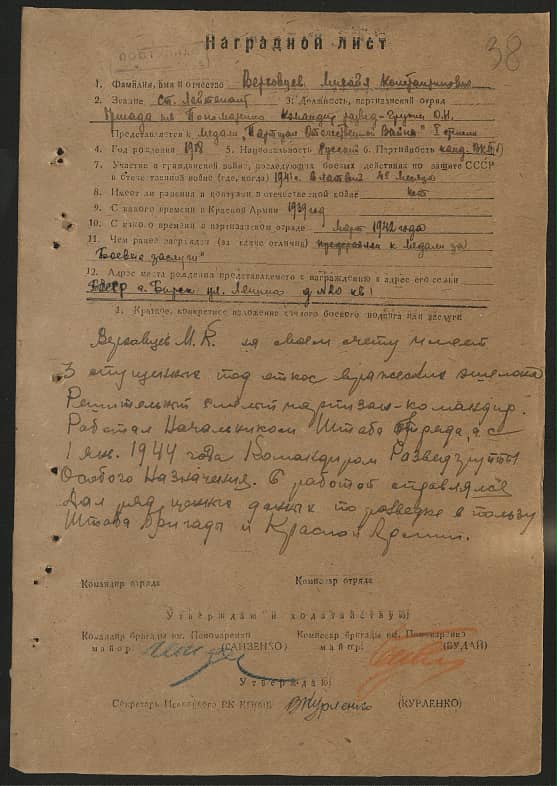 38
Наградной лист
1. Фамилия, имя и отчество Верховцев Михаил Константинович
2. Звание Ст. Лейтенант 3. Должность, партизанский отряд
Бригада им Пономаренко Командир развед-группы О.Н.
Представляется к Медали "Партизан Отечественной Войны" I степени
4. Год рождения 5. Национальность Русский 6. Партийность канд. ВКП(б)
7. Участие в гражданской войне, последующих боевых действиях по защите СССР
и отечественной войне (где, когда) 1941 г.
8. Имеет ли ранения и контузии в отечественной войне нет
9. С какого времени в Красной Армии 1939 год
10. С какого времени в партизанском отряде март 1942 года
11. Чем ранее награжден (за какие отличия) представлен к медали за
Боевые заслуги"
12. Адрес места рождения представляемого к награждению и адрес его семьи
г. Бирск ул. Ленина д №20 кв 1
1. Краткое, конкретное изложение личного боевого подвига или заслуги
Верховцев М.К. на своем счету имеет
3 спущенных под откос вражеских эшелона
Решительный смелый партизан-командир.
Работал Начальником Штаба отряда, а с
1 янв. 1944 года Командиром Разведгруппы
Особого Назначения. С работой справлялся
Дал ряд ценных данных по разведке в пользу
Штаба Бригады и Красной Армии.
Командир отряда Комиссар отряда
Утверждаю и ходатайствую:
Командир бригады им. Пономаренко Комиссар бригады им. Пономаренко
майор (САНЗЕНКО) майор (БУДАЙ)
Утверждаю:
Секретарь РК КП(б)Б ВКурленко (КУРЛЕНКО)